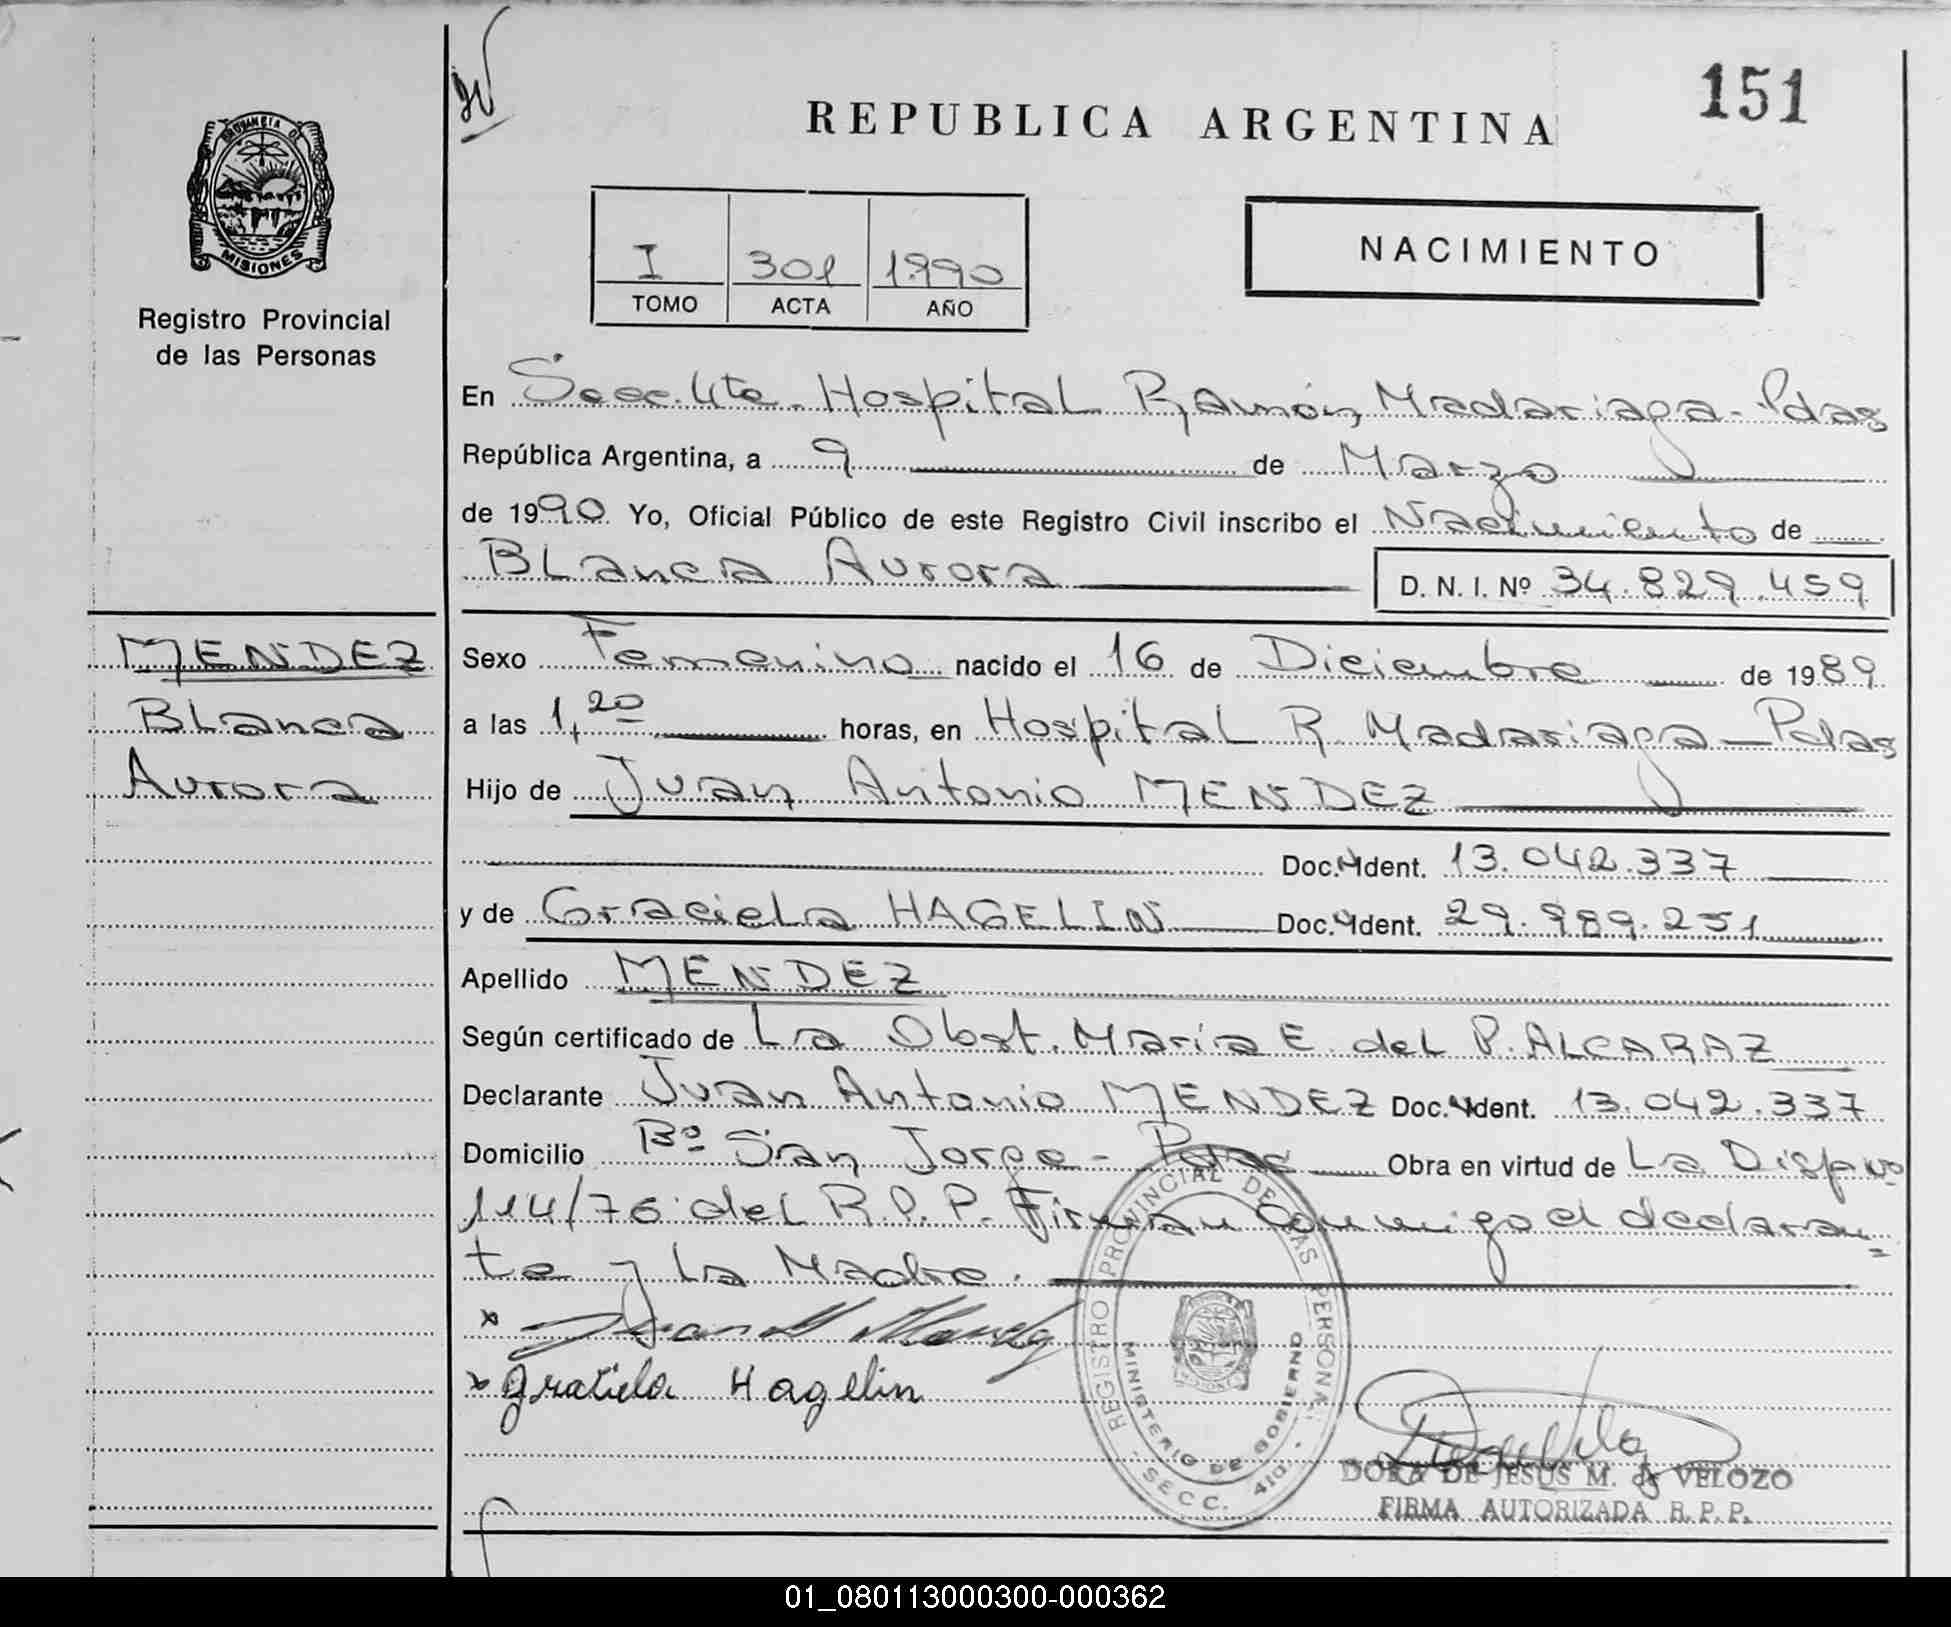 151
REPUBLICA ARGENTINA
PROVINCIA DE
MISIONES
Registro Provincial
de las Personas
I 301 1990
TOMO ACTA AÑO
NACIMIENTO
En Secc. 4ta. Hospital Ramón Madariaga - Pdas
República Argentina, a 9 de Marzo
de 1990 Yo, Oficial Público de este Registro Civil inscribo el Nacimiento de
Blanca Aurora D. N. I. Nº 34.829.459
MENDEZ
Blanca
Aurora
Sexo Femenino nacido el 16 de Diciembre de 1989
a las 1,20 horas, en Hospital R. Madariaga - Pdas
Hijo de Juan Antonio MENDEZ
Doc. Ident. 13.042.337
y de Graciela HAGELIN Doc. Ident. 29.989.251
Apellido MENDEZ
Según certificado de La Obst. María E. del P. ALCARAZ
Declarante Juan Antonio MENDEZ Doc. Ident. 13.042.337
Domicilio Bº San Jorge - Pdas Obra en virtud de La Disp. Nº
114/76 del R.P.P. Firman Conmigo el declaran=
te y La Madre.
x Juan A Mendez
x Graciela Hagelin
REGISTRO PROVINCIAL DE LAS PERSONAS
MINISTERIO DE GOBIERNO
SECC. 4ta.
DORA DE JESUS M. de VELOZO
FIRMA AUTORIZADA R. P. P.
01_080113000300-000362